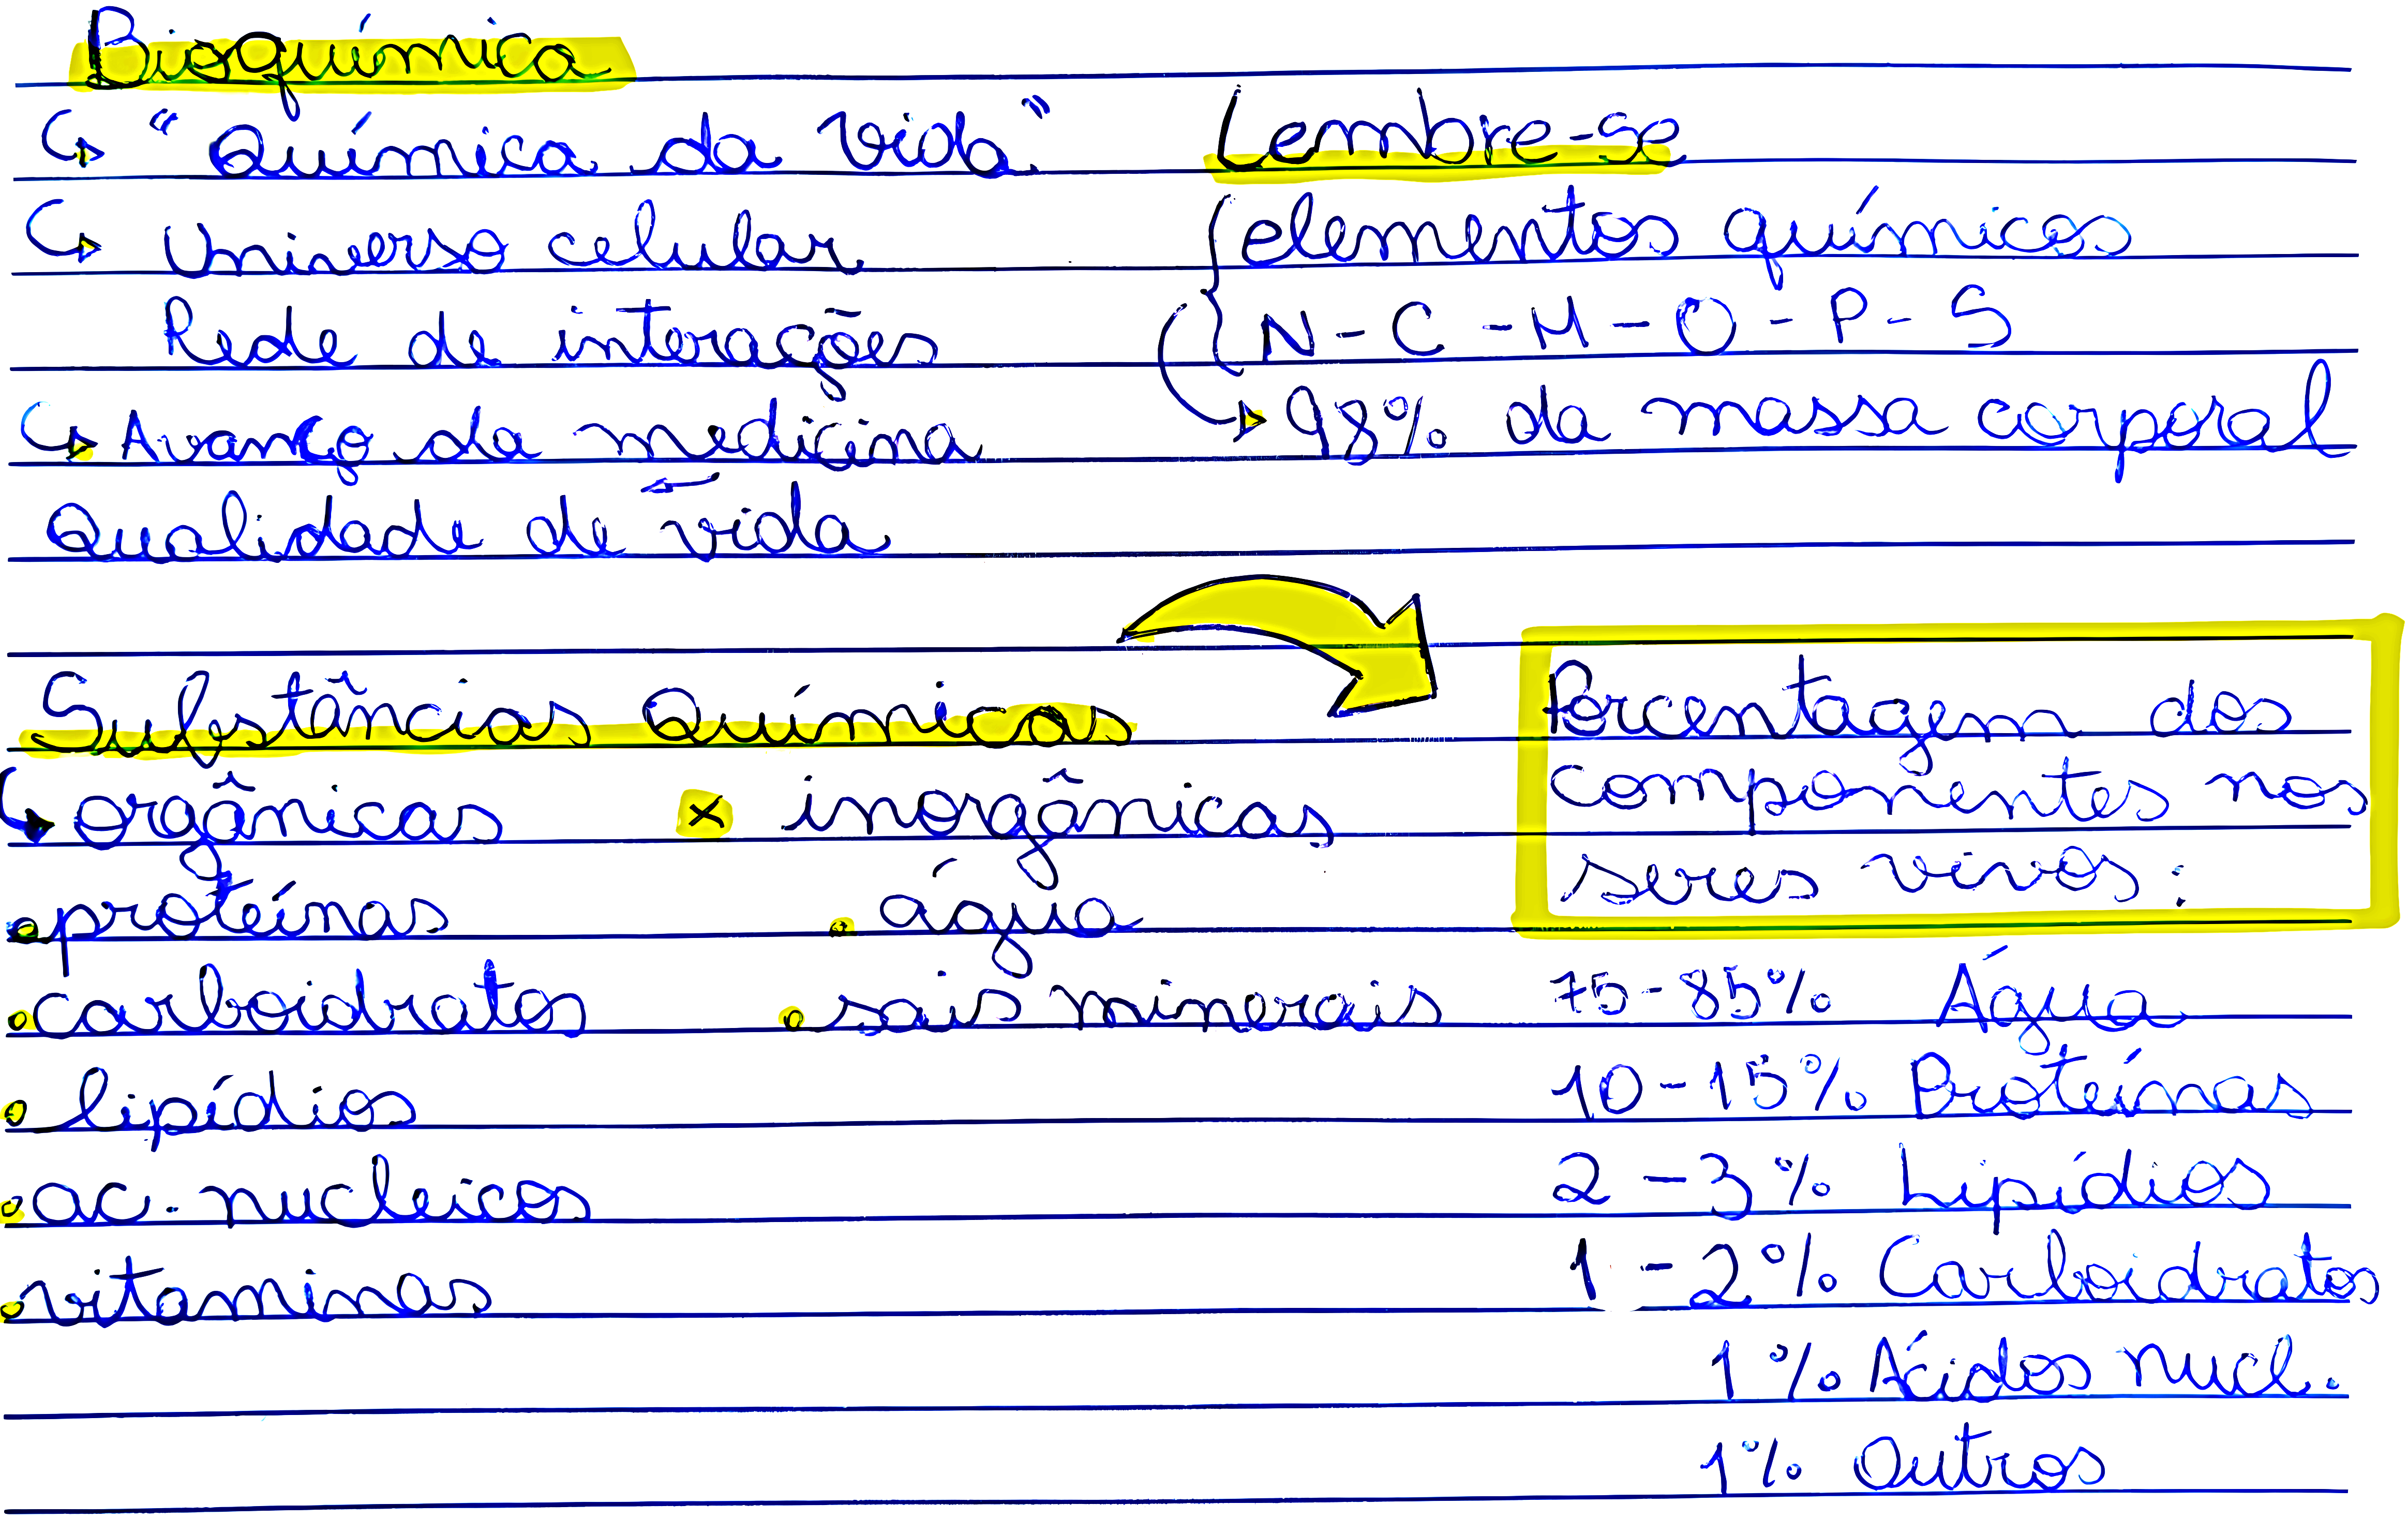 Bioquímica
"Química da Vida"
Universo celular
Rede de interações
Avanço da medicina
Qualidade de vida
Lembre-se
elementos químicos
N - C - H - O - P - S
98% da massa corporal
Substâncias Químicas
orgânicas x inorgânicas
proteínas
carboidratos
lipídios
ac. nucleicos
vitaminas
água
sais minerais
Porcentagem dos
componentes nos
seres vivos:
75-85% Água
10-15% Proteínas
2-3% Lipídios
1-2% Carboidratos
1% Ácidos nucl.
1% Outros